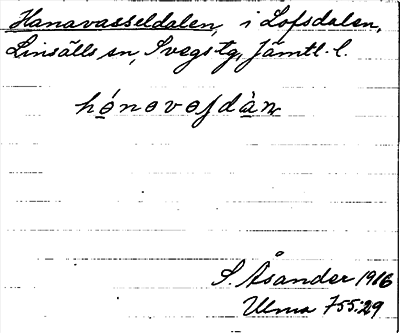 Hanavasseldalen, i Lofsdalen,
Linsälls sn, Svegs tg, Jämtl. l.
hónovaſdàn
S. Åsander 1916
Ulma 755:29